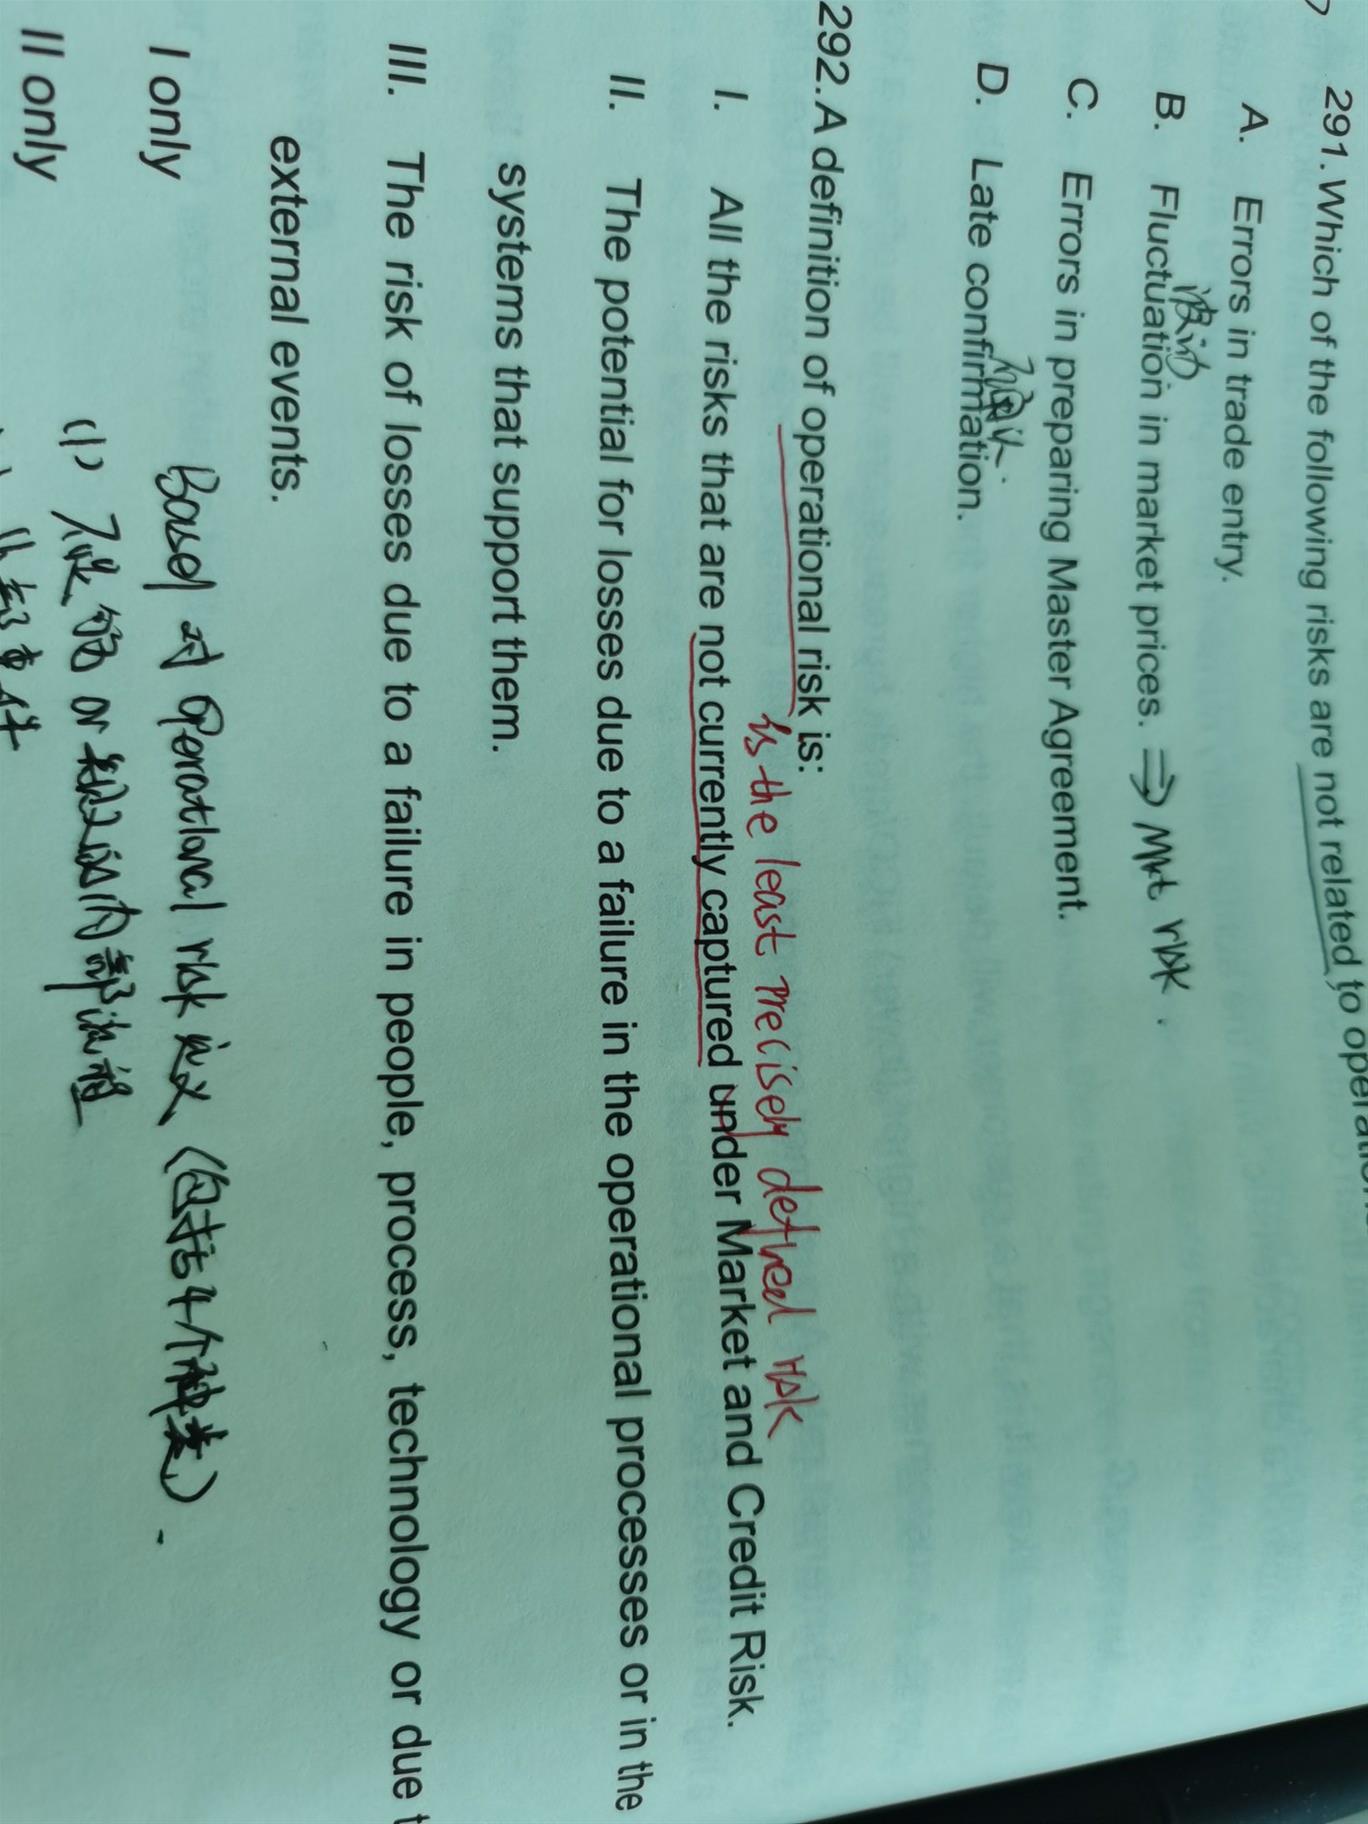 291. Which of the following risks are not related to operatio
A. Errors in trade entry.
波动
B. Fluctuation in market prices. ⇒ Mkt risk.
C. Errors in preparing Master Agreement.
确认.
D. Late confirmation.
292. A definition of operational risk is:
is the least precisely defined risk
I. All the risks that are not currently captured under Market and Credit Risk.
II. The potential for losses due to a failure in the operational processes or in the
systems that support them.
III. The risk of losses due to a failure in people, process, technology or due t
external events.
I only
Basel 对 operational risk 定义 (包括4个种类).
II only
(1) or 内部流程
外部事件